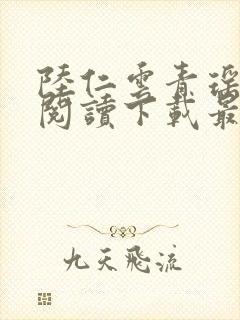 陸仁雲青瑤
閱讀下載最
九天飛流